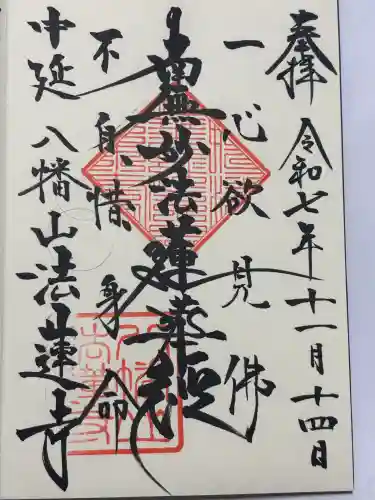 奉拝
令和七年十一月十四日
一心欲見佛
南無妙法蓮華経
不自惜身命
中延
八幡山法蓮寺